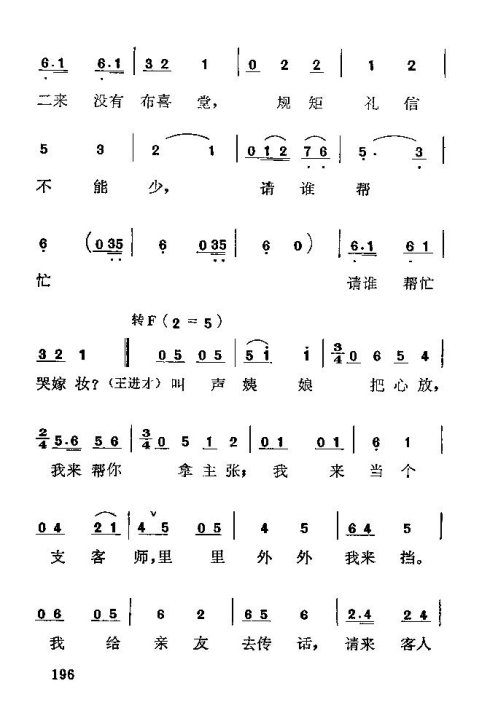 6·1 6·1 | 3 2 1 | 0 2 2 | 1 2
二来 没有 布喜 堂， 规 矩 礼 信
5 3 | 2 1 | 0 1 2 7 6 | 5· 3
不 能 少， 请 谁 帮
6 (0 3 5 | 6 0 3 5 | 6 0) | 6·1 6 1
忙 请谁 帮忙
转F（2 = 5）
3 2 1 ‖ 0 5 0 5 | 5 i i | 3/4 0 6 5 4
哭嫁 妆？（王进才）叫 声 姨 娘 把 心 放，
2/4 5·6 5 6 | 3/4 0 5 1 2 | 0 1 0 1 | 6 1
我来 帮你 拿 主 张， 我 来 当 个
0 4 2 1 | 4 5 0 5 | 4 5 | 6 4 5
支 客 师，里 里 外 外 我来 挡。
0 6 0 5 | 6 2 | 6 5 6 | 2·4 2 4
我 给 亲 友 去传 话， 请来 客人
196